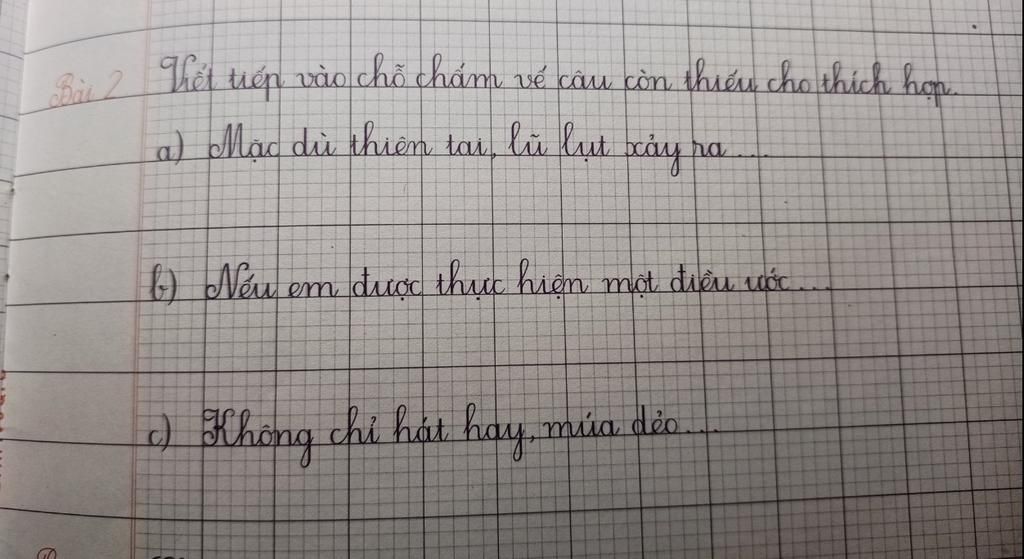 Bài 2 Viết tiếp vào chỗ chấm vế câu còn thiếu cho thích hợp.
a) Mặc dù thiên tai, lũ lụt xảy ra...
b) Nếu em được thực hiện một điều ước...
c) Không chỉ hát hay, múa dẻo...